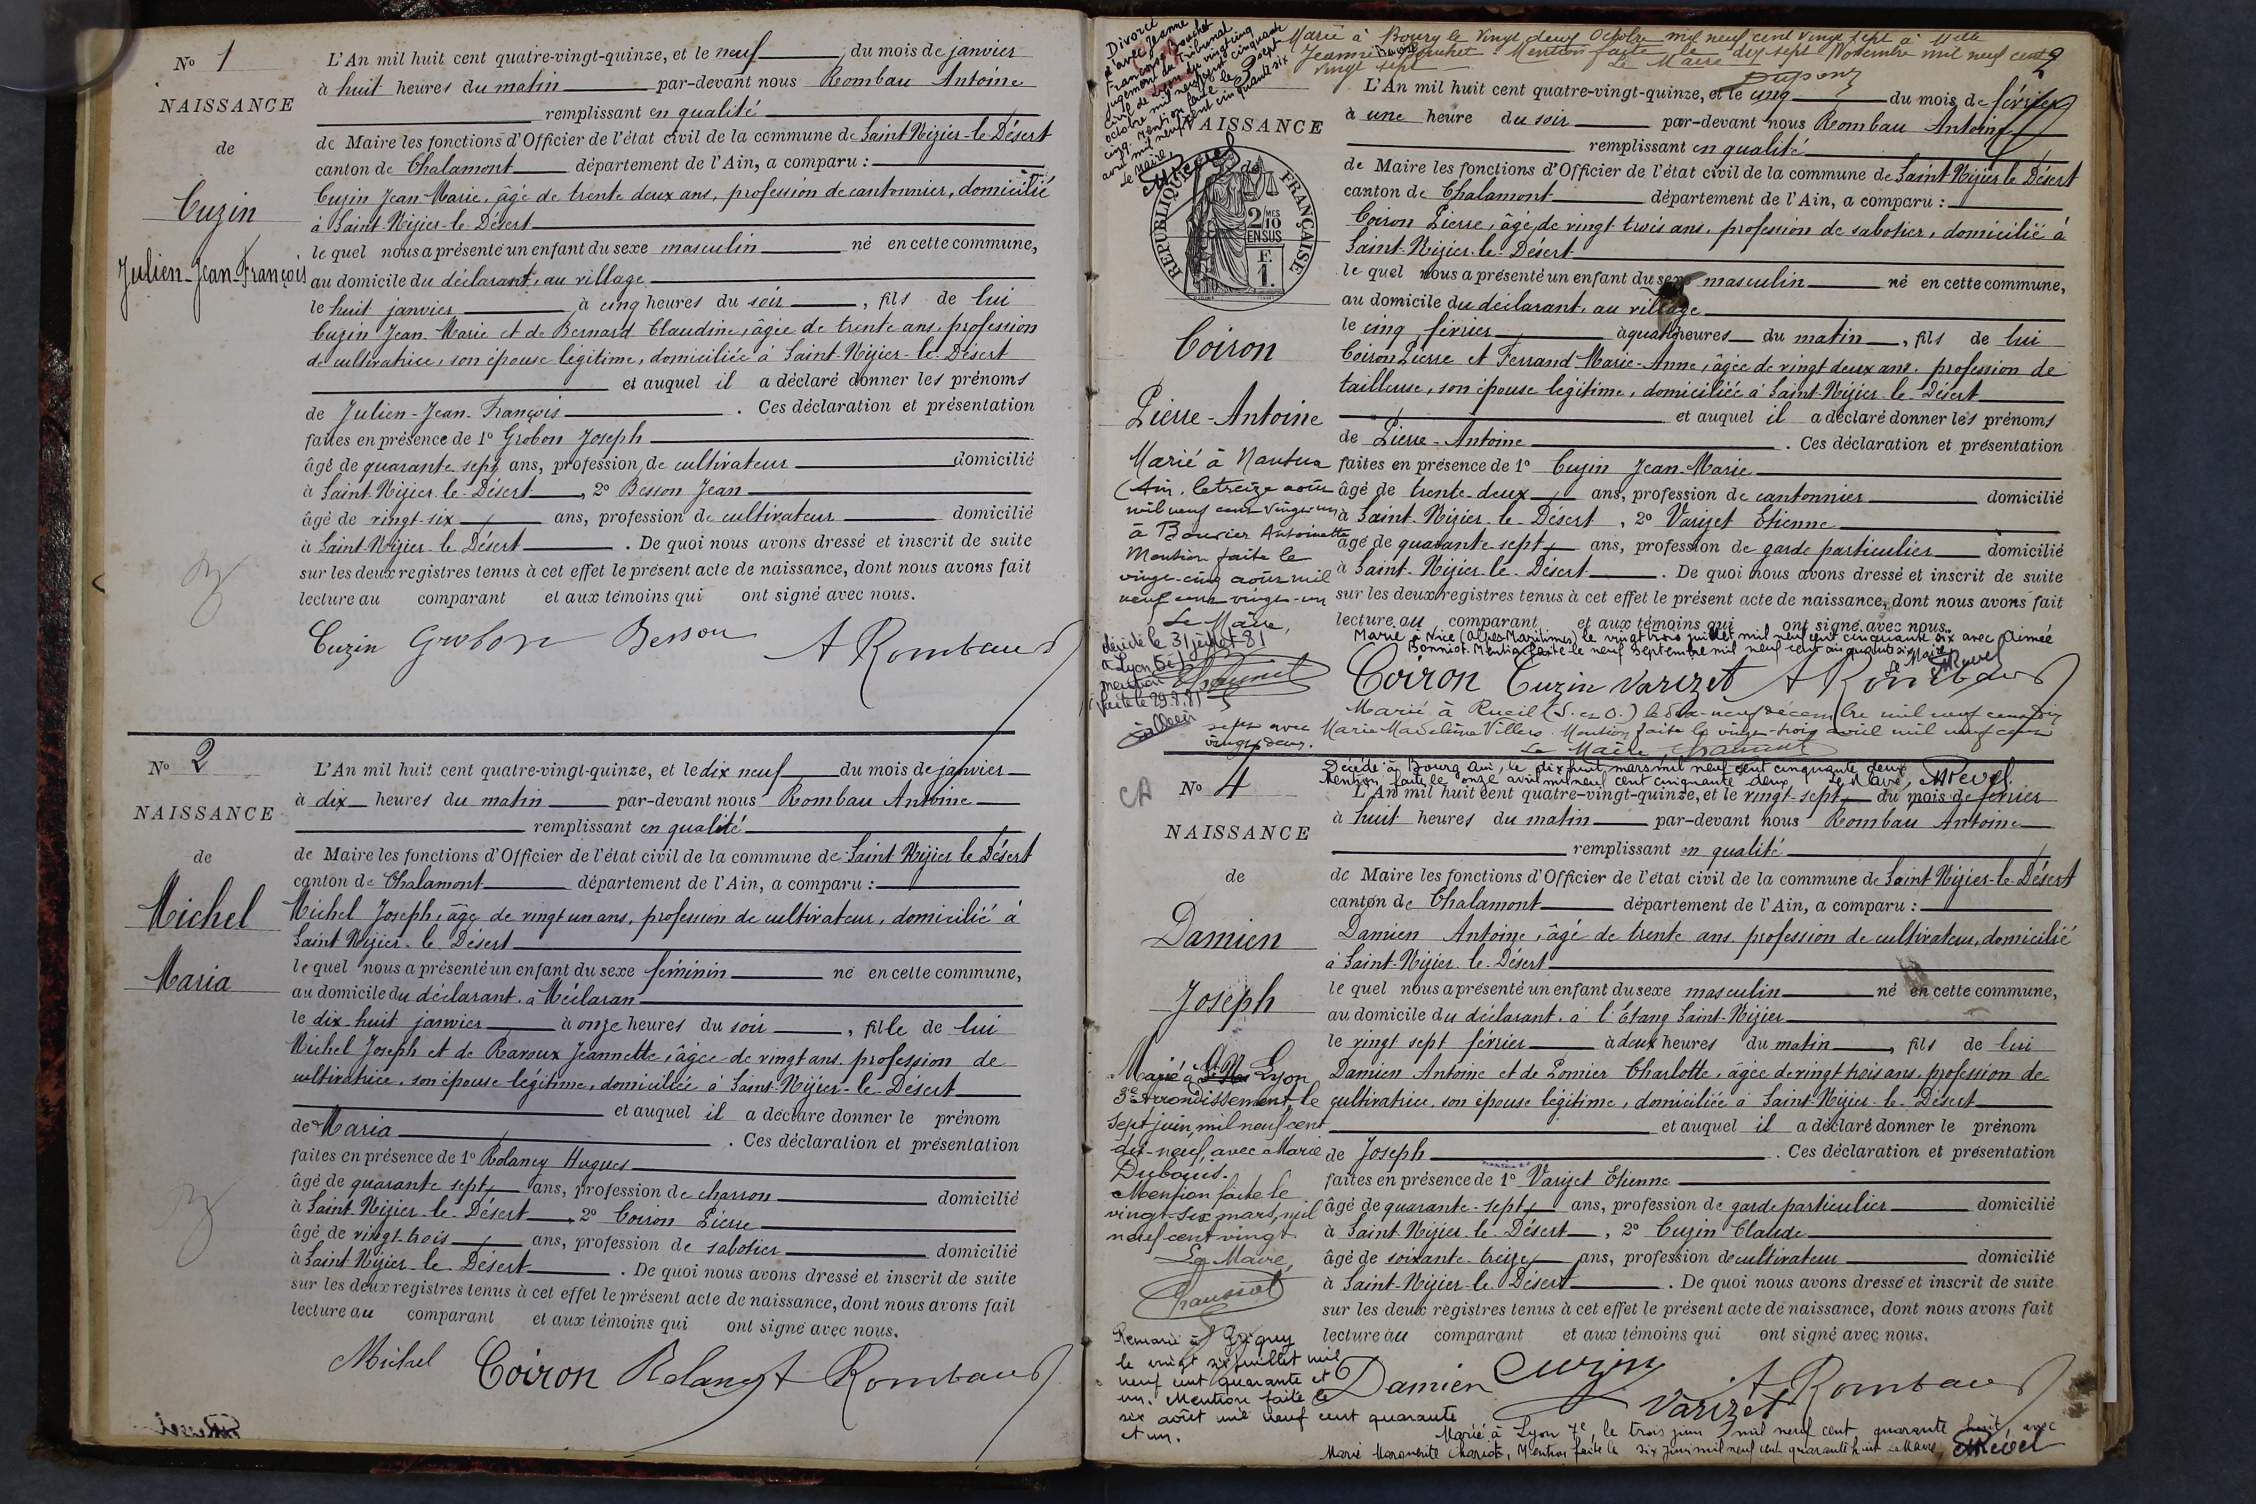 No 1
NAISSANCE
de
Cuzin
Julien-Jean-François
L'An mil huit cent quatre-vingt-quinze, et le neuf du mois de janvier
à huit heures du matin par-devant nous Rombau Antoine
remplissant en qualité
de Maire les fonctions d'Officier de l'état civil de la commune de Saint Nizier-le-Désert
canton de Chalamont département de l'Ain, a comparu :
Cuzin Jean-Marie, âgé de trente deux ans, profession de cantonnier, domicilié
à Saint-Nizier-le-Désert
le quel nous a présenté un enfant du sexe masculin né en cette commune,
au domicile du déclarant, au village
le huit janvier à cinq heures du soir, fils de lui
Cuzin Jean-Marie et de Bernard Claudine, âgée de trente ans, profession
de cultivatrice, son épouse légitime, domiciliée à Saint-Nizier-le-Désert
et auquel il a déclaré donner les prénoms
de Julien-Jean-François. Ces déclaration et présentation
faites en présence de 1o Grobon Joseph
âgé de quarante sept ans, profession de cultivateur domicilié
à Saint-Nizier-le-Désert, 2o Besson Jean
âgé de vingt-six ans, profession de cultivateur domicilié
à Saint-Nizier-le-Désert. De quoi nous avons dressé et inscrit de suite
sur les deux registres tenus à cet effet le présent acte de naissance, dont nous avons fait
lecture au comparant et aux témoins qui ont signé avec nous.
Cuzin Grobon Besson A Rombaud
No 2
NAISSANCE
de
Michel
Maria
L'An mil huit cent quatre-vingt-quinze, et le dix neuf du mois de janvier
à dix heures du matin par-devant nous Rombau Antoine
remplissant en qualité
de Maire les fonctions d'Officier de l'état civil de la commune de Saint Nizier le Désert
canton de Chalamont département de l'Ain, a comparu :
Michel Joseph, âgé de vingt un ans, profession de cultivateur, domicilié à
Saint Nizier-le-Désert
le quel nous a présenté un enfant du sexe féminin né en cette commune,
au domicile du déclarant, à Méclaran
le dix-huit janvier à onze heures du soir, fille de lui
Michel Joseph et de Ravoux Jeannette, âgée de vingt ans, profession de
cultivatrice, son épouse légitime, domiciliée à Saint-Nizier-le-Désert
et auquel il a déclaré donner le prénom
de Maria. Ces déclaration et présentation
faites en présence de 1o Rolancy Hugues
âgé de quarante sept ans, profession de charron domicilié
à Saint-Nizier-le-Désert, 2o Coiron Pierre
âgé de vingt-trois ans, profession de sabotier domicilié
à Saint Nizier-le-Désert. De quoi nous avons dressé et inscrit de suite
sur les deux registres tenus à cet effet le présent acte de naissance, dont nous avons fait
lecture au comparant et aux témoins qui ont signé avec nous.
Michel Coiron Rolancy A Rombaud
2
Divorcé
d'avec Jeanne
Françoise Bouchet
jugement du Tribunal
civil de Lyon du vingt cinq
octobre mil neuf cent cinquante
cinq. Mention faite le sept
avril mil neuf cent cinquante six
Le Maire,
MRevel
Marié à Bourg le vingt deux Octobre mil neuf cent vingt sept à Melle
Jeanne Bouchet. Mention faite le dix-sept Novembre mil neuf cent
vingt sept Le Maire
Dupont
NAISSANCE
RÉPUBLIQUE FRANÇAISE
2/10 MES
EN SUS
F.
1.
Coiron
Pierre-Antoine
L'An mil huit cent quatre-vingt-quinze, et le cinq du mois de février
à une heure du soir par-devant nous Rombau Antoine
remplissant en qualité
de Maire les fonctions d'Officier de l'état civil de la commune de Saint-Nizier le Désert
canton de Chalamont département de l'Ain, a comparu :
Coiron Pierre, âgé de vingt trois ans, profession de sabotier, domicilié à
Saint-Nizier-le-Désert
le quel nous a présenté un enfant du sexe masculin né en cette commune,
au domicile du déclarant, au village
le cinq février à quatre heures du matin, fils de lui
Coiron Pierre et Ferrand Marie-Anne, âgée de vingt deux ans, profession de
tailleuse, son épouse légitime, domiciliée à Saint-Nizier-le-Désert
et auquel il a déclaré donner les prénoms
de Pierre-Antoine. Ces déclaration et présentation
faites en présence de 1o Cuzin Jean-Marie
âgé de trente-deux ans, profession de cantonnier domicilié
à Saint-Nizier-le-Désert, 2o Varizet Etienne
âgé de quarante-sept ans, profession de garde particulier domicilié
à Saint-Nizier-le-Désert. De quoi nous avons dressé et inscrit de suite
sur les deux registres tenus à cet effet le présent acte de naissance, dont nous avons fait
lecture au comparant et aux témoins qui ont signé avec nous.
Marié à Nantua
(Ain, le treize août
mil neuf cent vingt-un
à Bouvier Antoinette
Mention faite le
vingt-cinq août mil
neuf cent vingt-un
Le Maire,
décédé le 31 juillet 81
à Lyon 5è
mention
faite le 29.8.81
Marié à Nice (Alpes-Maritimes) le vingt trois juillet mil neuf cent cinquante six avec Aimée
Bonniot. Mention faite le neuf Septembre mil neuf cent cinquante six Le Maire MRevel
Coiron Cuzin Varizet A Rombaud
Marié à Rueil (S. et O.) le dix-neuf décembre mil neuf cent dix
sept avec Marie Madeleine Villers. Mention faite le vingt-trois avril mil neuf cent
vingt deux. Le Maire
Décédé à Bourg Ain, le dix huit mars mil neuf cent cinquante deux
Mention faite le onze avril mil neuf cent cinquante deux Le Maire, MRevel
CA
No 4
NAISSANCE
de
Damien
Joseph
L'An mil huit cent quatre-vingt-quinze, et le vingt-sept du mois de février
à huit heures du matin par-devant nous Rombau Antoine
remplissant en qualité
de Maire les fonctions d'Officier de l'état civil de la commune de Saint Nizier-le-Désert
canton de Chalamont département de l'Ain, a comparu :
Damien Antoine, âgé de trente ans, profession de cultivateur, domicilié
à Saint-Nizier-le-Désert
le quel nous a présenté un enfant du sexe masculin né en cette commune,
au domicile du déclarant, à l'Étang Saint-Nizier
le vingt sept février à deux heures du matin, fils de lui
Damien Antoine et de Pomier Charlotte, âgée de vingt trois ans, profession de
cultivatrice, son épouse légitime, domiciliée à Saint-Nizier-le-Désert
et auquel il a déclaré donner le prénom
de Joseph. Ces déclaration et présentation
faites en présence de 1o Varizet Etienne
âgé de quarante-sept ans, profession de garde particulier domicilié
à Saint-Nizier-le-Désert, 2o Cuzin Claude
âgé de soixante-treize ans, profession de cultivateur domicilié
à Saint-Nizier-le-Désert. De quoi nous avons dressé et inscrit de suite
sur les deux registres tenus à cet effet le présent acte de naissance, dont nous avons fait
lecture au comparant et aux témoins qui ont signé avec nous.
Marié à Lyon
3e Arrondissement, le
sept juin, mil neuf cent
dix-neuf, avec Marie
Dubouis.
Mention faite le
vingt-six mars, mil
neuf-cent vingt.
Le Maire,
Remarié à
le vingt six juillet mil
neuf cent quarante et
un. Mention faite le
six août mil neuf cent quarante
et un.
Damien Cuzin Varizet A Rombaud
Marié à Lyon 7e, le trois juin mil neuf cent quarante huit avec
Marie Marguerite Chariot, Mention faite le six juin mil neuf cent quarante huit Le Maire, MRevel